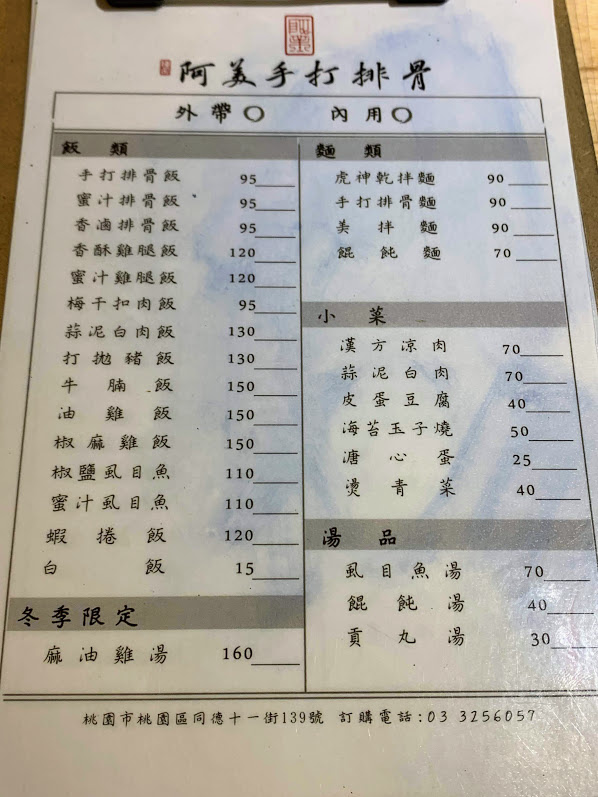 阿美手打排骨
外帶○ 內用○
飯類
手打排骨飯 95
蜜汁排骨飯 95
香滷排骨飯 95
香酥雞腿飯 120
蜜汁雞腿飯 120
梅干扣肉飯 95
蒜泥白肉飯 130
打拋豬飯 130
牛腩飯 150
油雞飯 150
椒麻雞飯 150
椒鹽虱目魚 110
蜜汁虱目魚 110
蝦捲飯 120
白飯 15
冬季限定
麻油雞湯 160
麵類
虎神乾拌麵 90
手打排骨麵 90
美拌麵 90
餛飩麵 70
小菜
漢方涼肉 70
蒜泥白肉 70
皮蛋豆腐 40
海苔玉子燒 50
溏心蛋 25
燙青菜 40
湯品
虱目魚湯 70
餛飩湯 40
貢丸湯 30
桃園市桃園區同德十一街139號 訂購電話:03 3256057